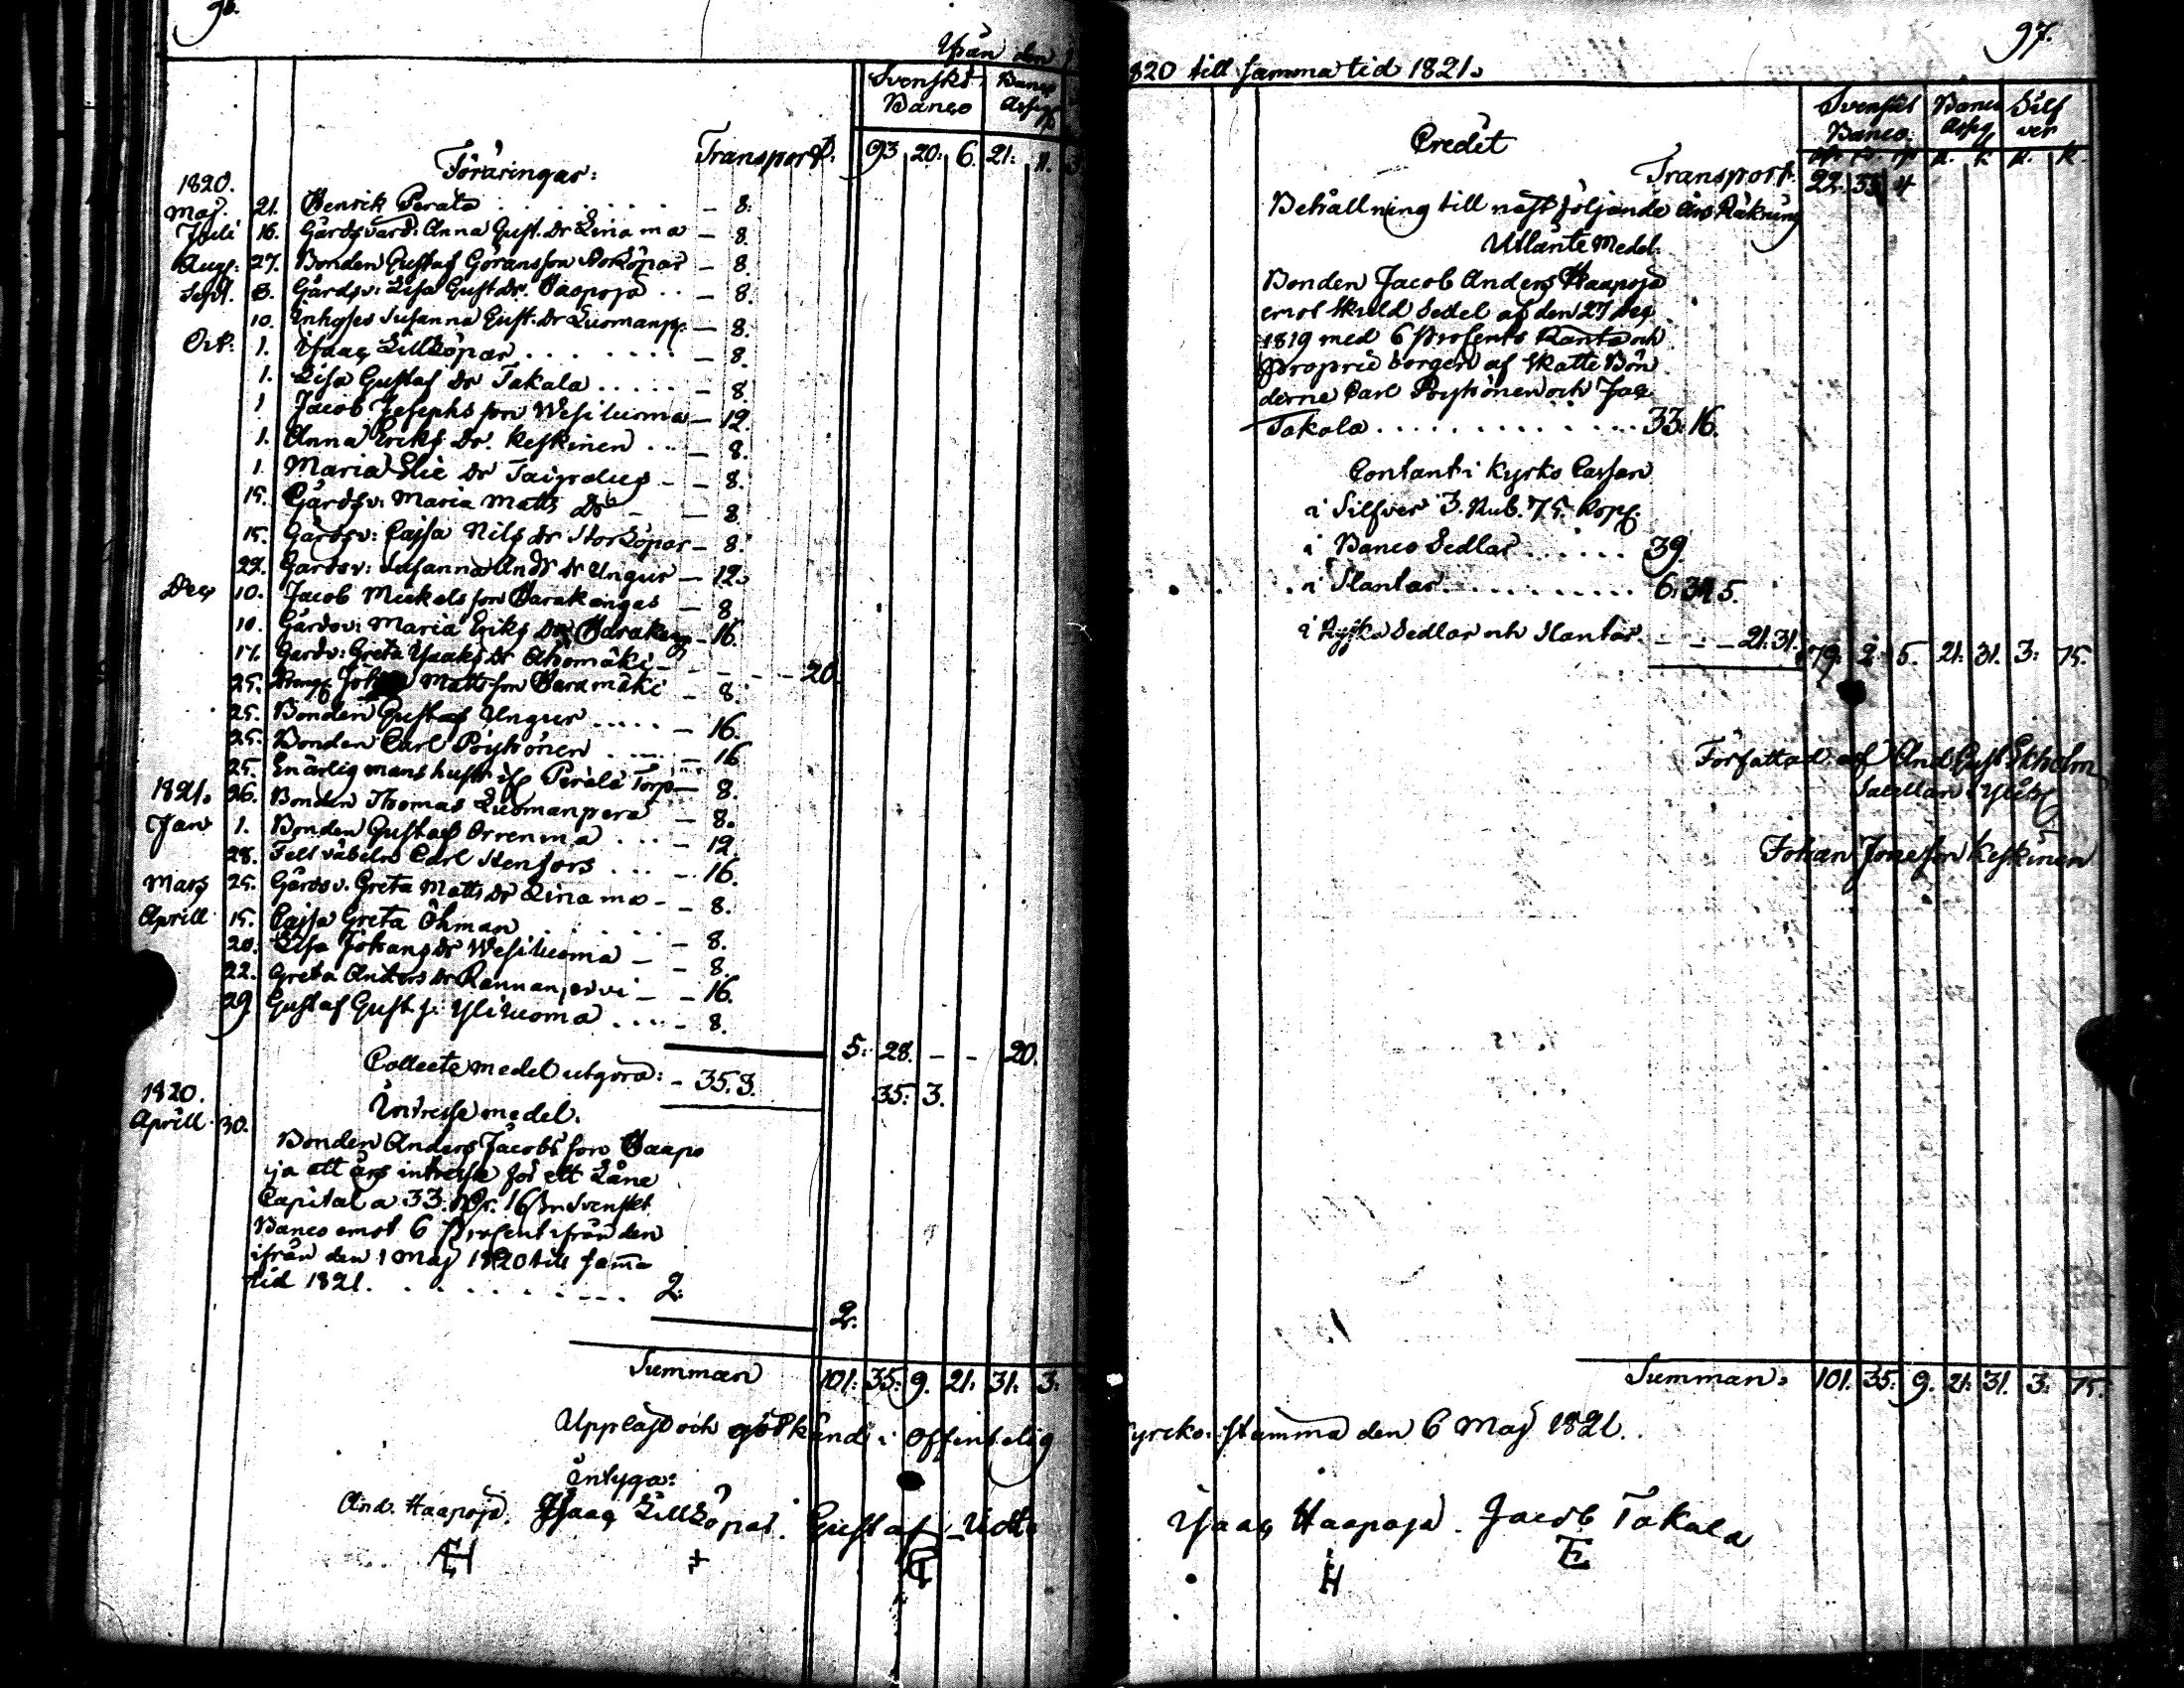 96.
Ifrån den 1
Svenskt Banco
Banco Assign.
Transport: 93. 20: 6. 21: 11. 3
Föräringar:
1820.
Maj. 21. Henrik Perala . . . . . . . — 8:
Julii 16. Gårdsvard: Anna Gust. Dr Linama — 8.
Aug: 27. Bonden Gustaf Göransson Stoköpar — 8.
Sept. 3. Gårdsv: Lisa Gust Dr. Haapoja . . — 8.
10. Inhyses Susanna Gust. Dr Luomanp: — 8.
Oct: 1. Isaac Lillköpar . . . . . . . — 8.
1. Lisa Gustaf Dr Takala . . . . . — 8.
1 Jacob Josephsson Wesiluoma — 12.
1. Anna Eriks Dr. Keskinen . . . — 8.
1. Maria Elie Dr Taipalus — — 8.
15. Gårdsv: Maria Matts Dr — — 8
15. Gårdsv: Cajsa Nils Dr Storköpar — 8.
22. Gårdsv: Susanna And: Dr Ungur — 12.
Dec 10. Jacob Mickelsson Harakangas — 8
10. Gårdsv: Maria Eriks Dr Harakang — 16.
17. Gardv: Greta Isaaks Dr Ahomäki — — — — 20.
25. Dreng Joh Mattsson Haramäki — 8.
25. Bonden Gustaf Ungur . . . . . — 16.
25. Bonden Carl Pöyhönen . . . . . — 16
25. En ärlig mans hustr if Perälä Torp — 8.
1821. 26. Bonden Thomas Luomanpera — 8.
Jan 1. Bonden Gustaf Orrenma . . . — 12.
28. Feltväbeln Carl Stenfors . . . — 16.
Mars 25. Gårdsv. Greta Matts Dr Linama — — 8.
Aprill 15. Cajsa Greta Öhman . . . . . — 8.
20. Lisa Johans Dr Wesiluoma — — 8.
22. Greta Anders Dr Rannanjervi — — 16.
29. Gustaf Gust S: Yliluoma . . . . — 8.
5: 28. — — 20.
Collecte medel utgöra: — 35. 3. 35: 3.
1820.
Intresse medel.
Aprill 30.
Bonden Anders Jacobsson Haapo
ja ett års intresse för ett Låne
Capital a 33. Rdr. 16 s Svenskt
Banco emot 6 Prosent ifrån den
ifrån den 1 Maj 1820 till samma
tid 1821. . . . . . . . . . . 2:
2.
Summan 101: 35: 9. 21: 31: 3:
Uppläst och godkänd i offentelig
intyga:
And. Haapoja. Isaac Lillköpar. Gustaf
AH + G
97.
1820 till samma tid 1821.
Svenskt Banco. Banco Assig. Silfver
Credit
R. K. R. K.
Transport. 22. 33. 4
Behållning till nästföljande års Räkning
Utlänte Medel.
Bonden Jacob Anders Haapoja
emot Skuld Sedel af den 27 Dec
1819 med 6 Prosents Ränta och
proprie borgen af Skatte Bön
derne Carl Pöyhönen och Jac
Takala . . . . . . . . . . . . 33: 16.
Contant i Kyrko Cassan
i Silfver 3. Rub. 75. Kop:
i Banco Sedlar . . . . . . 39.
i Slantar . . . . . . . . . . 6. 34. 5.
i Ryska Sedlar och Slantar. — — — 21: 31. 79: 2: 5. 21: 31. 3: 75.
Författad af And Gust Ekholm
Sacellan i Ylist
Johan Jonesson Keskinen
Summan: 101. 35. 9. 21: 31. 3: 75.
Kyrcko: stämma den 6 Maj 1821.
Isaac Haapoja. Jacob Takala
IH